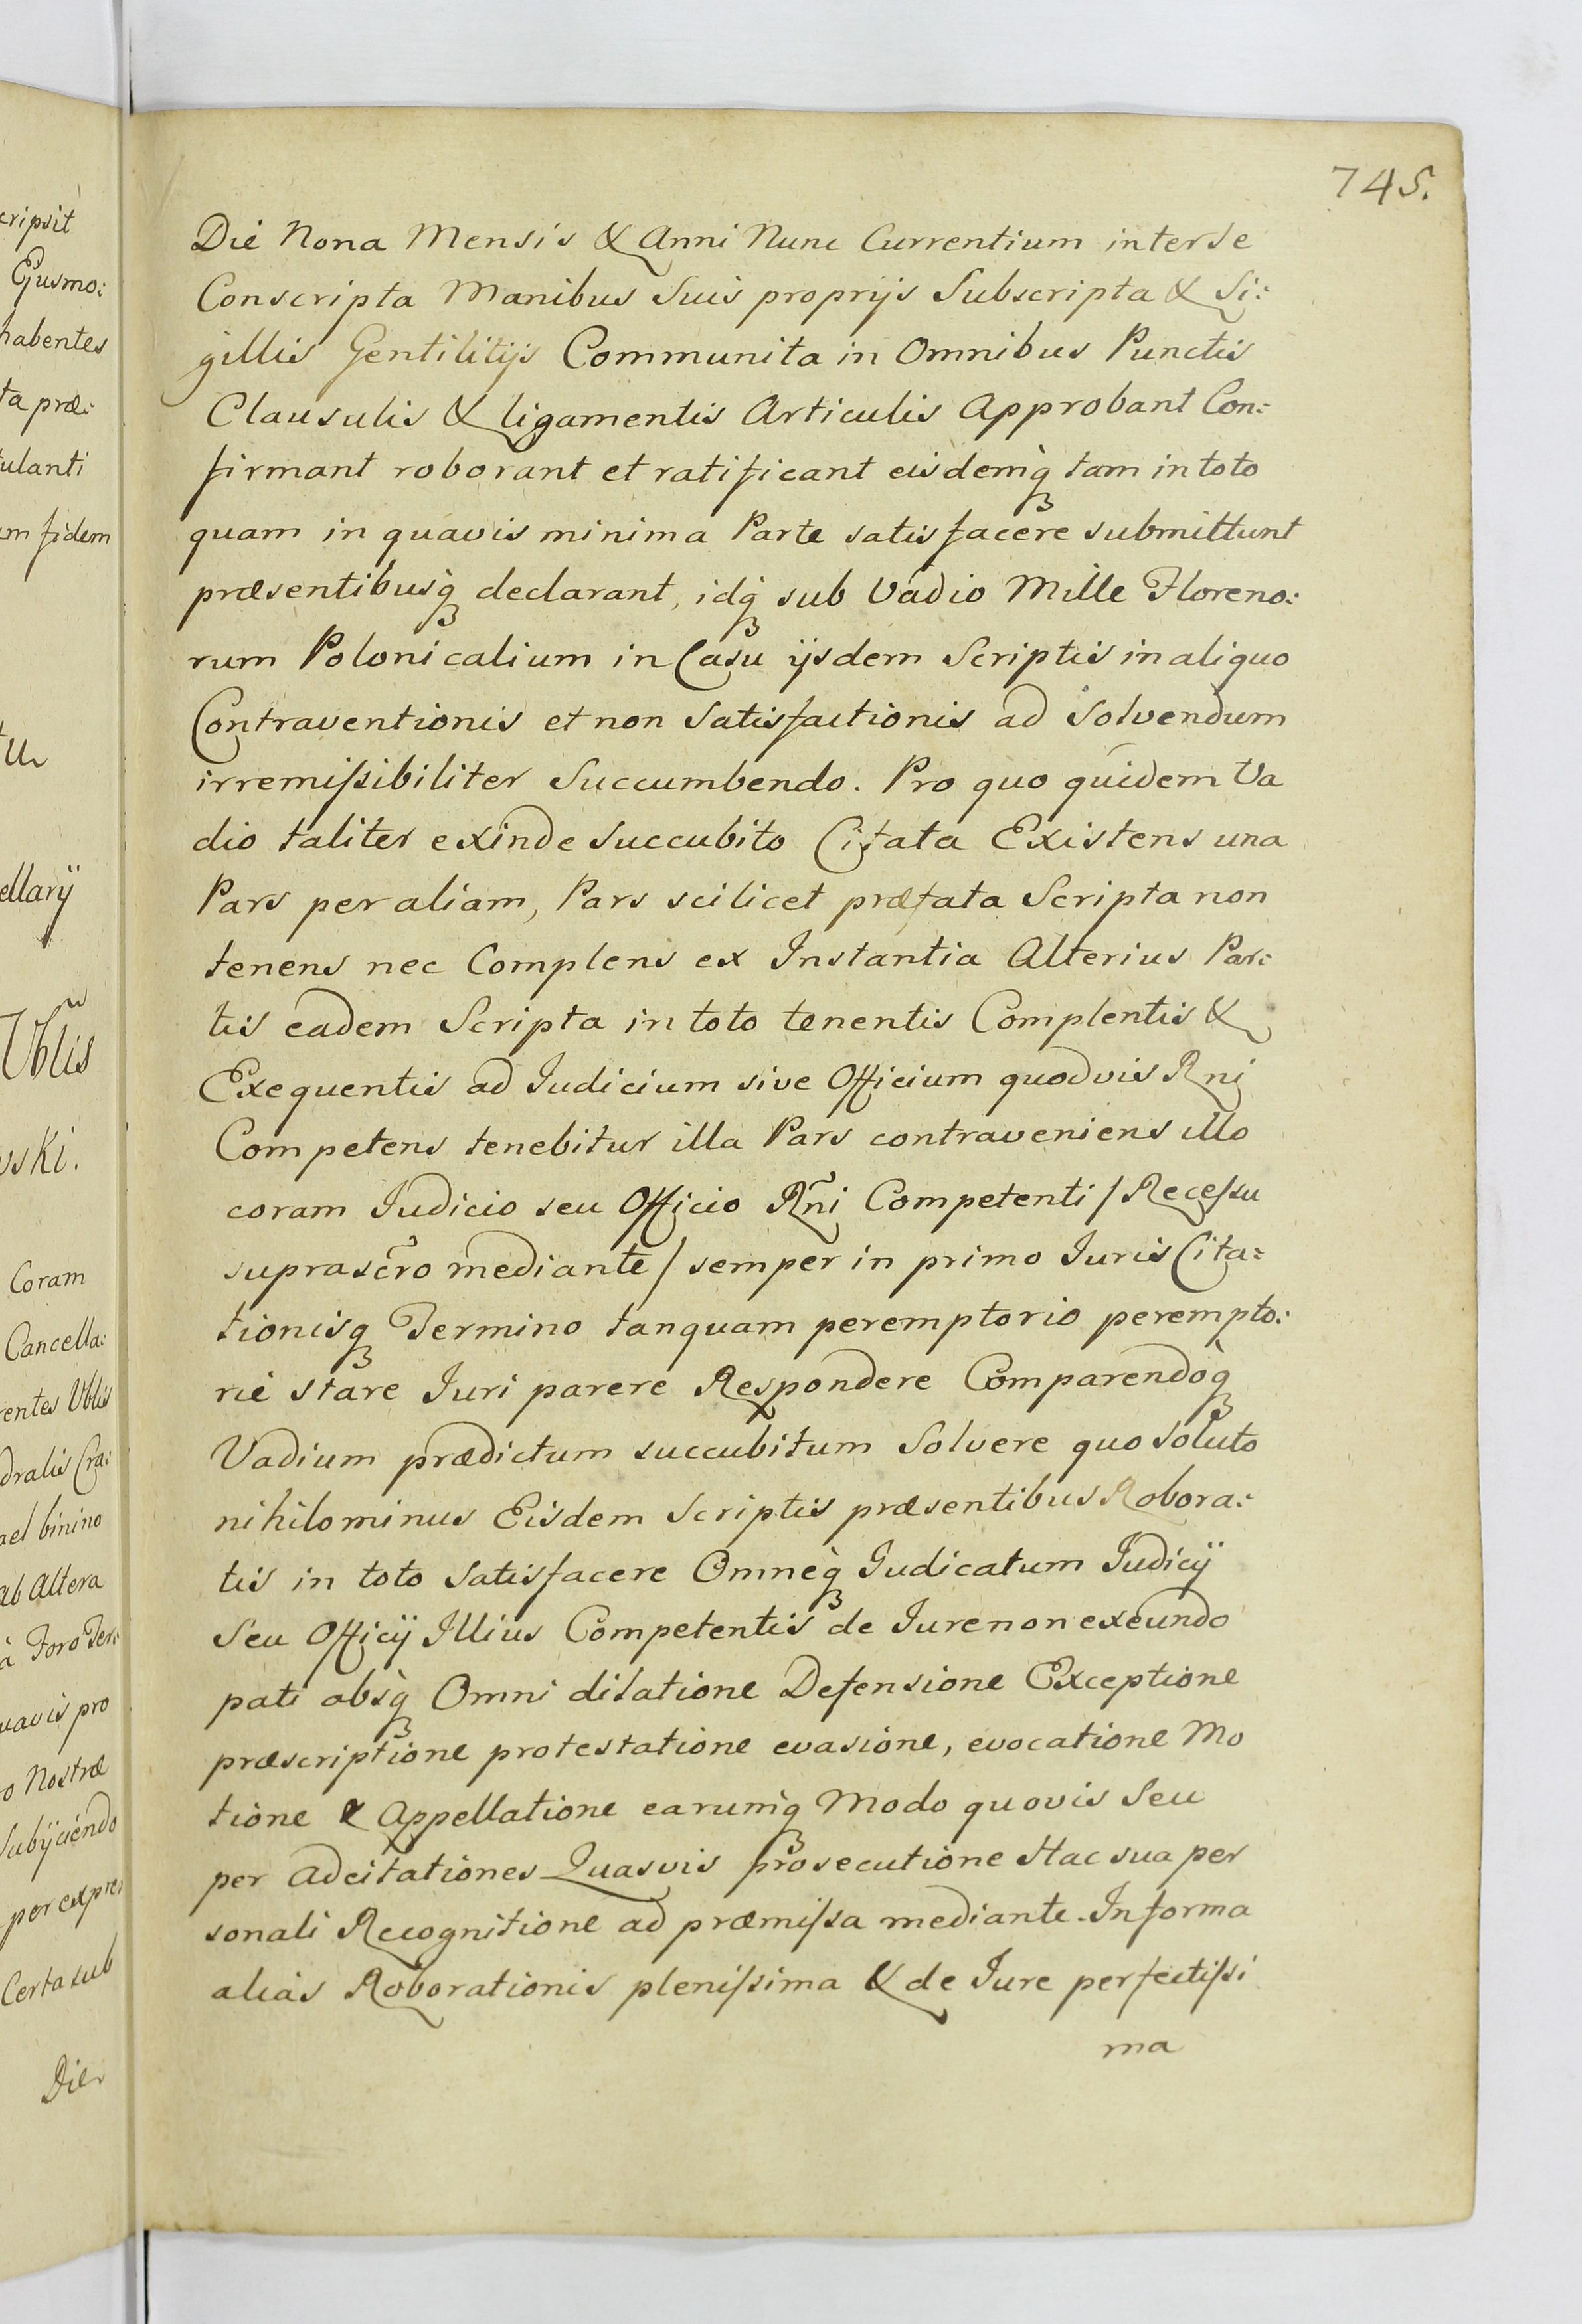 cripsit
Ejusmo:
habentes
ta præ:
tulanti
em fidem
ellarij
Vblis
vski.
Coram
Cancella:
rentes Vblis
dralis Cra:
ael binino
ab Altera
à Foro Ter:
uavis pro
o Nostræ
Subijciendo
per expres
Certa sub
Die
745.
Die Nona Mensis & Anni Nunc Currentium inter se
Conscripta Manibus Suis proprijs Subscripta & Si:
gillis Gentilitijs Communita in Omnibus Punctis
Clausulis & ligamentis Articulis Approbant Con:
firmant roborant et ratificant eisdemq̀ꝫ tam in toto
quam in quavis minima Parte satisfacere submittunt
præsentibusq̀ꝫ declarant, idq̀ꝫ sub Vadio Mille Floreno:
rum Polonicalium in Casu ijsdem Scriptis in aliquo
Contraventionis et non Satisfactionis ad Solvendum
irremiſsibiliter Succumbendo. Pro quo quidem Va
dio taliter exinde Succubito Citata Existens una
Pars per aliam, Pars scilicet præfata Scripta non
tenens nec Complens ex Instantia Alterius Par:
tis eadem Scripta in toto tenentis Complentis &
Exequentis ad Iudicium sive Officium quodvis Rni
Competens tenebitur illa Pars contraveniens illo
coram Iudicio seu Officio Rñi Competenti / Receſsu
suprascr̃o mediante / semper in primo Iuris Cita:
tionisqꝫ Termino tanquam peremptorio perempto:
rie stare Iuri parere Respondere Comparendoq̀ꝫ
Vadium prædictum succubitum Solvere quo soluto
nihilominus Eisdem Scriptis præsentibus Robora:
tis in toto Satisfacere Omneq̀ꝫ Iudicatum Iudicij
Seu Officij Illius Competentis de Iure non exeundo
pati absq̀ꝫ Omni dilatione Defensione Exceptione
præscriptione protestatione evasione, evocatione Mo
tione & Appellatione earumq̀ꝫ Modo quovis Seu
per adcitationes Quasvis prosecutione Hac sua per
sonali Recognitione ad præmiſsa mediante. In forma
alias Roborationis pleniſsima & de Iure perfectiſsi
ma